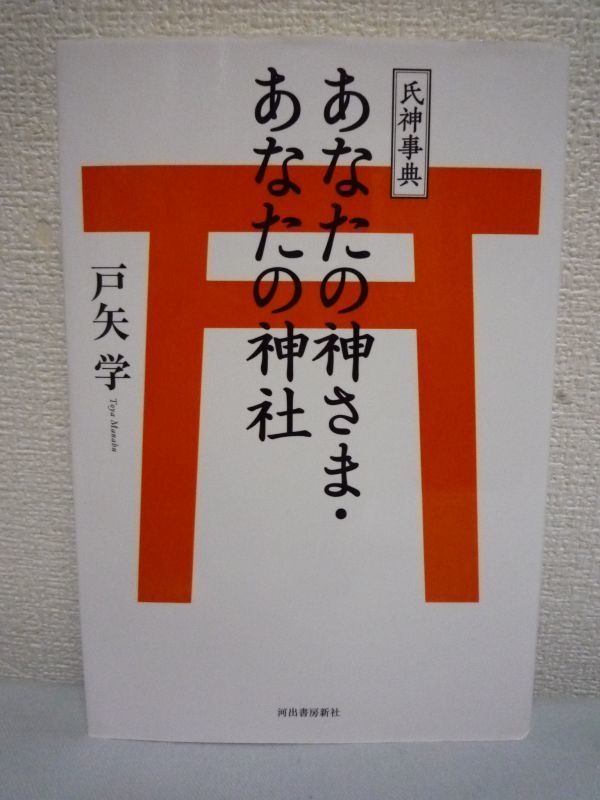 氏神事典
あなたの神さま・
あなたの神社
戸矢 学
Toya Manabu
河出書房新社